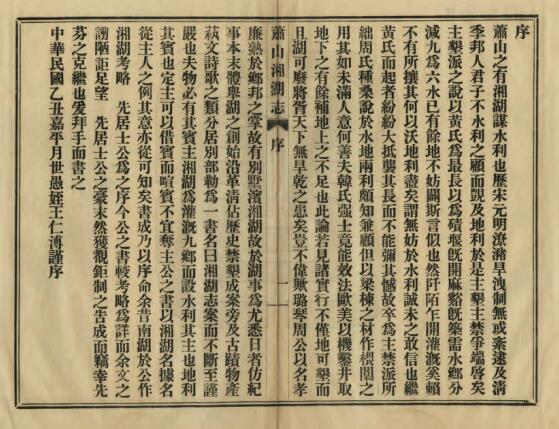 序
蕭山之有湘湖謀水利也歷宋元明潦瀦旱洩制無或紊逮及清
季邦人君子不水利之顧而說及地利於是主墾主禁爭端啓矣
主墾派之說以黃氏爲最長以爲磧堰旣開麻谿旣築需水鄉分
減九爲六水已有餘地不妨闢斯言似也然阡陌乍開灌漑奚賴
不有所攘其何以沃地利盡矣謂無妨於水利誠未之敢信也繼
黃氏而起者紛紛大抵襲其長而不能彌其憾故卒爲主禁派所
絀周氏種桑說於水地兩利頗知兼顧但以梁棟之材作椳闑之
用其如未滿人意何善夫韓氏强士竟能效法歐美以機鑿井取
地下之有餘補地上之不足也此論若見諸實行不僅地可墾而
且湖可廢將胥天下無旱乾之患矣豈不偉歟璐琴周公以名孝
蕭山湘湖志
序
一
廉熟於鄉邦之掌故有別墅濱湘湖故於湖事爲尤悉日者仿紀
事本末體舉湖之創始沿革清佔歷史禁墾成案旁及古蹟物產
萟文詩歌之類分居別部勒爲一書名曰湘湖志案而不斷至謹
嚴也夫物必有其賓主湘湖爲灌漑九鄉而設水利其主也地利
其賓也定主可以借賓而喧賓不宜奪主公之書以湘湖名據名
從主人之例其意亦從可知矣書成乃以序命余昔南湖於公作
湘湖考略　先居士公爲之序今公之書較考略爲詳而余文之
譾陋詎足望　先居士公之豪末然獲觀鉅制之告成而竊幸先
芬之克繼也爰拜手而書之
中華民國乙丑嘉平月世愚姪王仁溥謹序